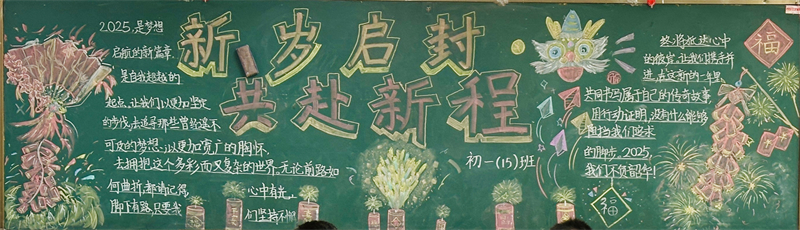 新岁启封
共赴新程
初一(15)班
2025,是梦想
启航的新篇章,
是自我超越的
起点,让我们以更加坚定
的步伐,去追寻那些曾经遥不
可及的梦想,以更加宽广的胸怀,
去拥抱这个多彩而又复杂的世界,无论前路如
何曲折,都请记得,
脚下有路,只要我
心中有光,
们坚持不懈
终将抵达心中
的彼岸,让我们携手并
进,在这新的一年里,
共同书写属于自己的传奇故事,
用行动证明,没有什么能够
阻挡我们路来
的脚步,2025,
我们不负韶华!
福
福